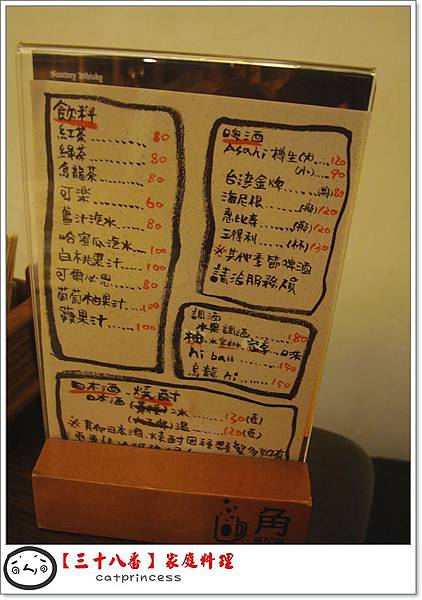 Suntory Whisky
飲料
紅茶........80
綠茶........80
烏龍茶........80
可楽........60
薑汁汽水...80
哈蜜瓜汽水...100
白桃果汁...100
可爾必思...80
葡萄柚果汁...100
蘋果汁...100
啤酒
Asahi 樽生(大)...120
(小)...90
台湾金牌...(瓶)80
海尼根...(瓶)120
惠比寿...(瓶)120
三得利...(杯)130
※其他季節啤酒
請洽服務員
調酒
水果調酒...180
hi ball ...150
烏龍 hi ...150
日本酒 燒酎
日本酒 冰...130(壺)
溫...120(壺)
※其他日本酒.燒酎因種類繁多如有
角
HIGH
【三十八番】家庭料理
catprincess